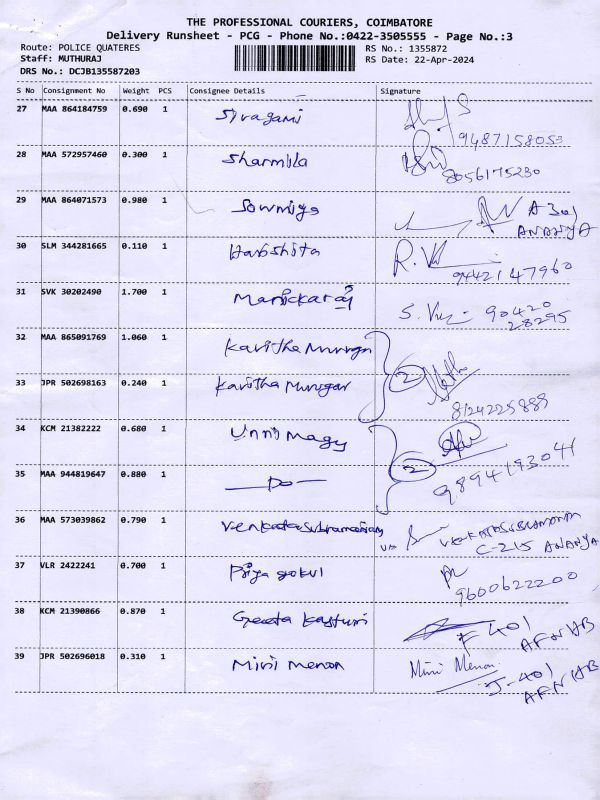 THE PROFESSIONAL COURIERS, COIMBATORE
Delivery Runsheet - PCG - Phone No.:0422-3505555 - Page No.:3
Route: POLICE QUATERES RS No.: 1355872
Staff: MUTHURAJ RS Date: 22-Apr-2024
DRS No.: DCJB135587203
S No Consignment No Weight PCS Consignee Details Signature
27 MAA 864184759 0.690 1 Sivagami
9487158053
28 MAA 572957460 0.300 1 Sharmila
8056175230
29 MAA 864071573 0.980 1 Sowmiya A 301
ANANYA
30 SLM 344281665 0.110 1 Harshita
9442147960
31 SVK 30202490 1.700 1 Manickaraj 90420
28295
32 MAA 865091769 1.060 1 Kavitha Murugan
2
33 JPR 502698163 0.240 1 Kavitha Murugan
8124225889
34 KCM 21382222 0.680 1 Unni magy
2
35 MAA 944819647 0.880 1 — Do — 9894193041
36 MAA 573039862 0.790 1 Venkatasubramaniam VENKATASUBRAMANIAN
C-215 ANANYA
37 VLR 2422241 0.700 1 Priya gokul
9600622200
38 KCM 21390866 0.870 1 Geeta Kasturi F 401
39 JPR 502696018 0.310 1 Mini Menon Mini Menon
J-401